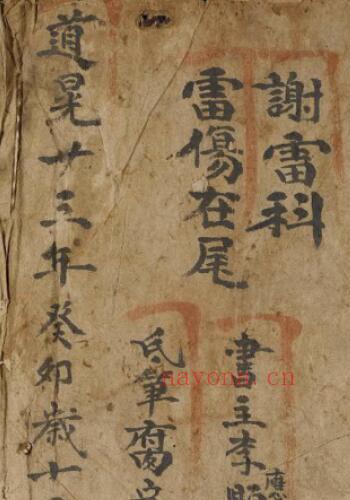 謝雷科
雷傷在尾
書主李
氏筆腐
道晃廿三年癸卯歲十
nayona.cn